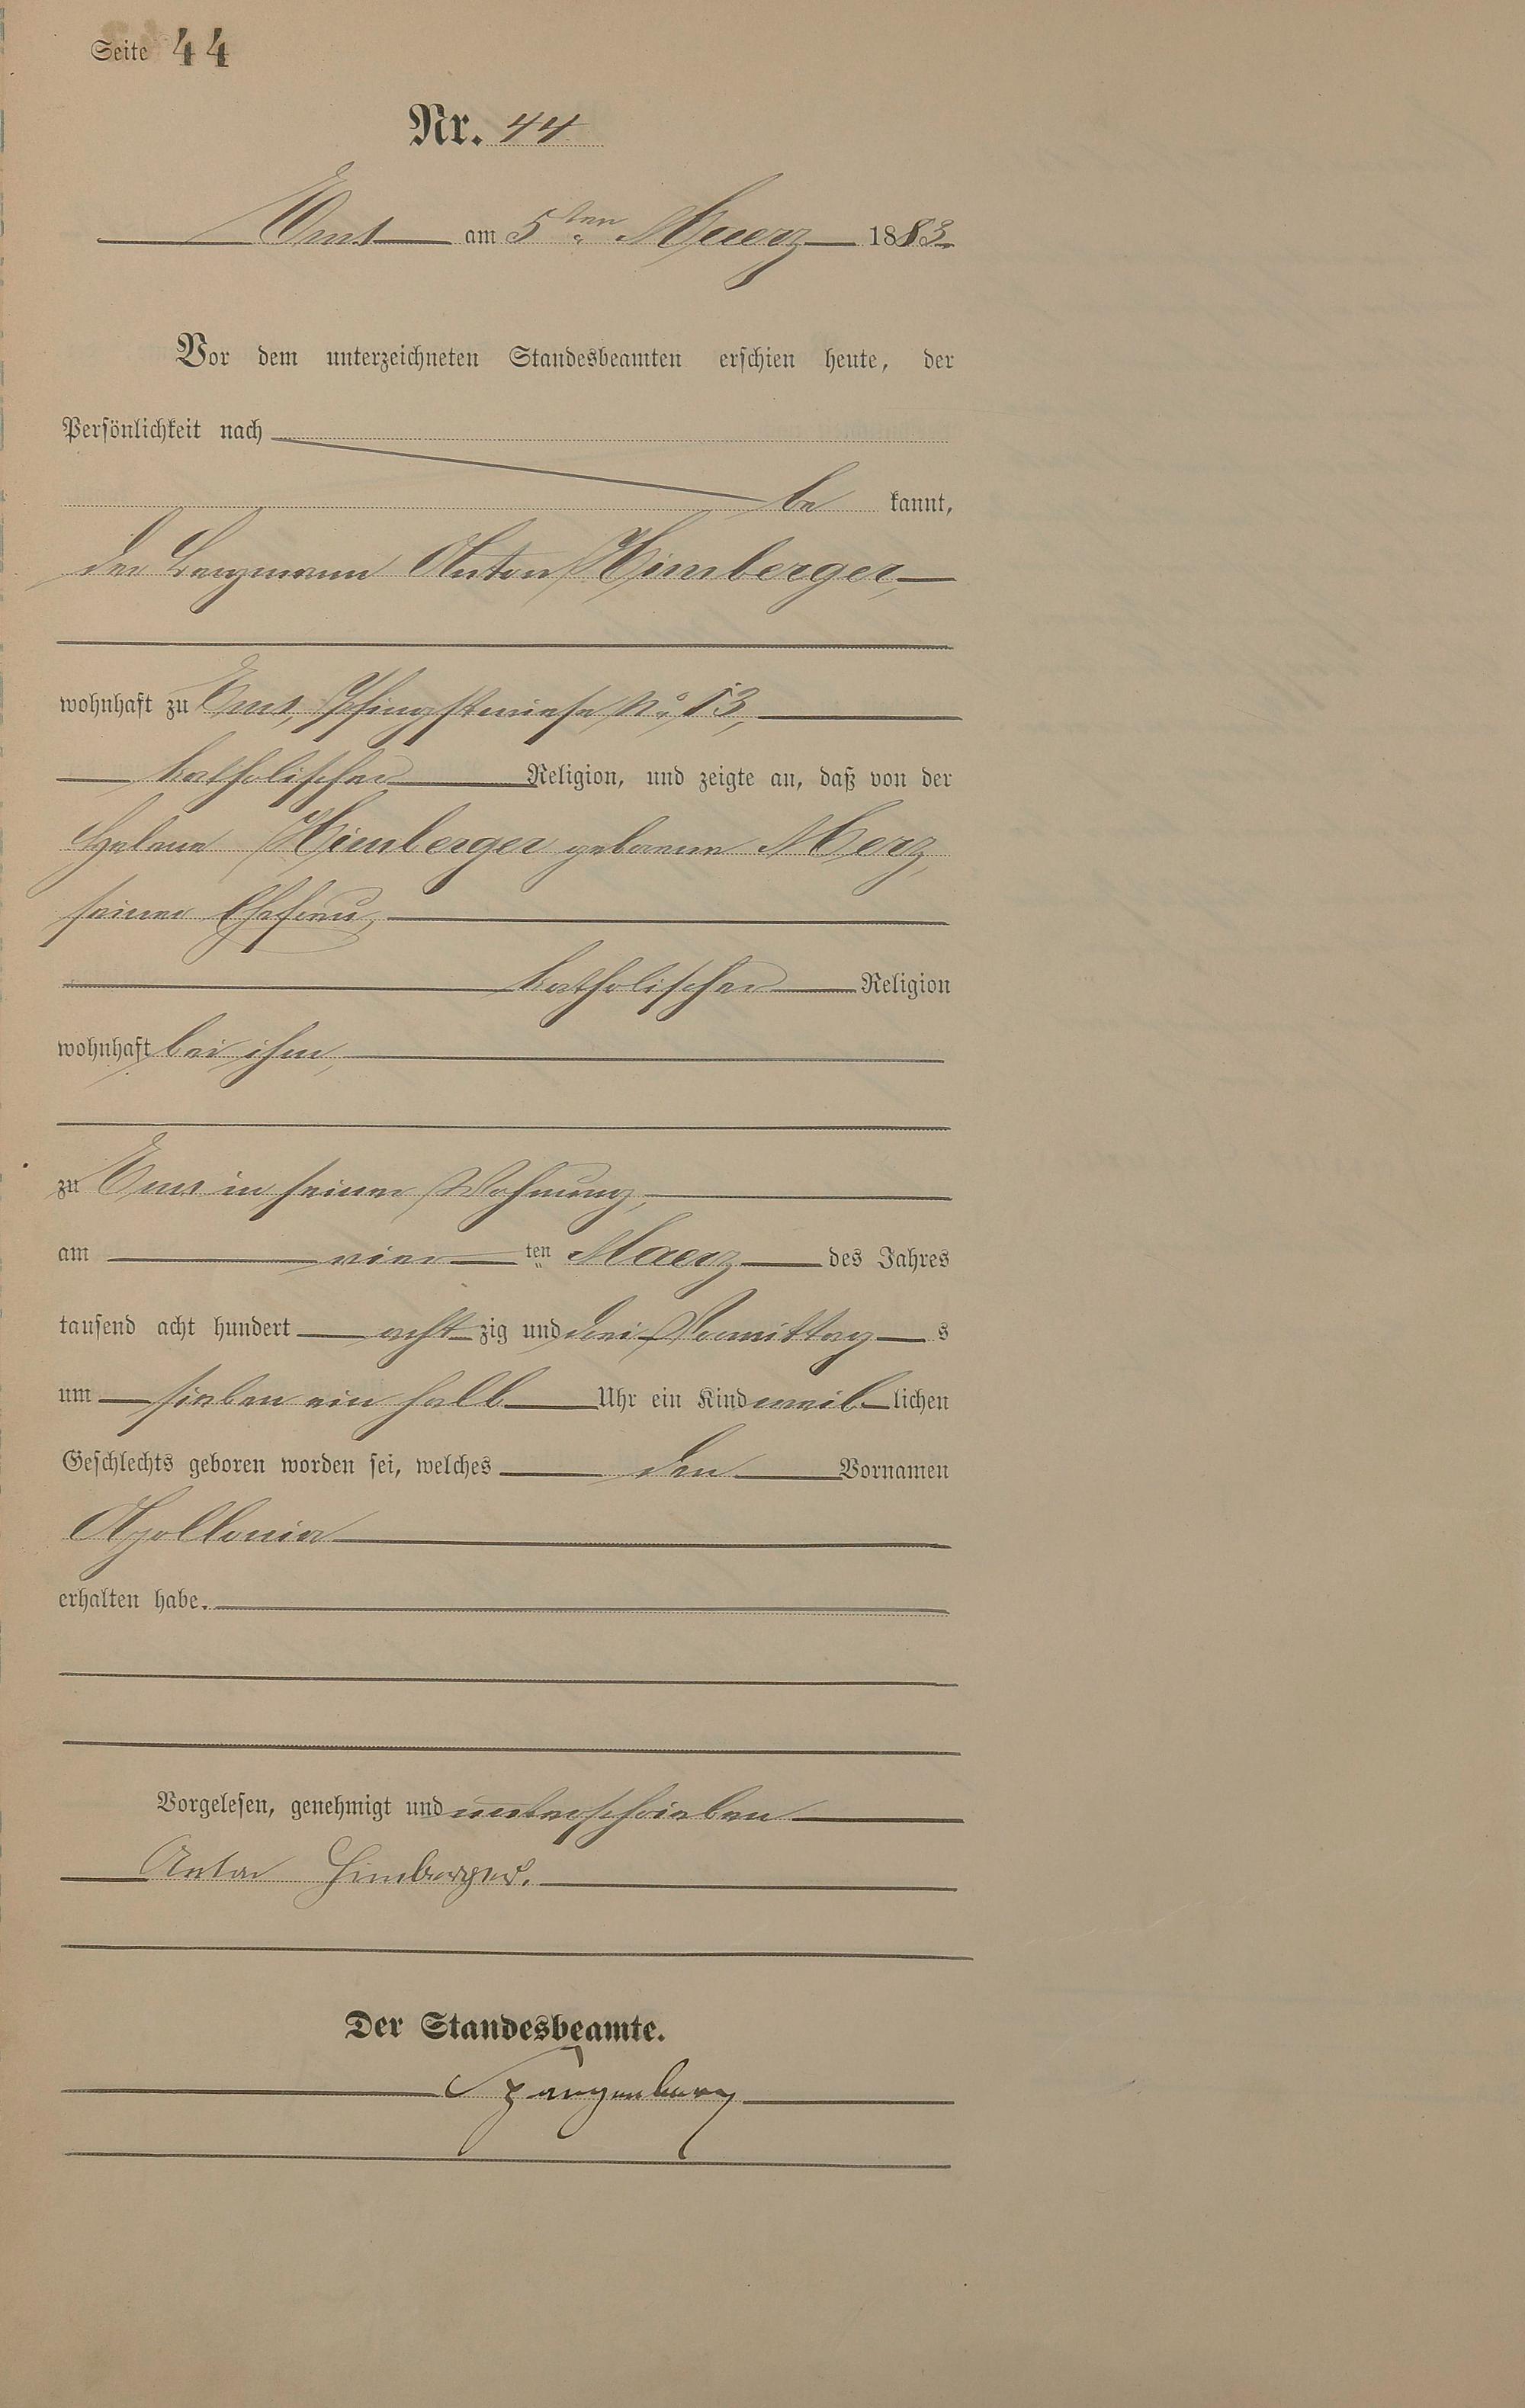 Seite 44
Nr. 44
Ems am 5ten Maerz 1883
Vor dem unterzeichneten Standesbeamten erschien heute, der
Persönlichkeit nach
be kannt,
der Bergmann Anton Himberger,
wohnhaft zu Ems, Pfingstwiese No 13,
katholischer Religion, und zeigte an, daß von der
Helene Himberger geborene Merz,
seiner Ehefrau,
katholischer Religion
wohnhaft bei ihm,
zu Ems in seiner Wohnung,
am vier ten Maerz des Jahres
tausend acht hundert acht zig und drei Vormittag s
um sieben ein halb Uhr ein Kind weib lichen
Geschlechts geboren worden sei, welches den Vornamen
Apollonia
erhalten habe.
Vorgelesen, genehmigt und unterschrieben
Anton Himberger.
Der Standesbeamte.
Spangenberg